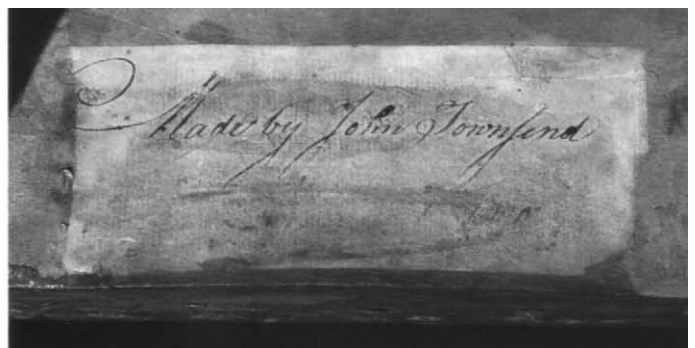 Made by John Townſend